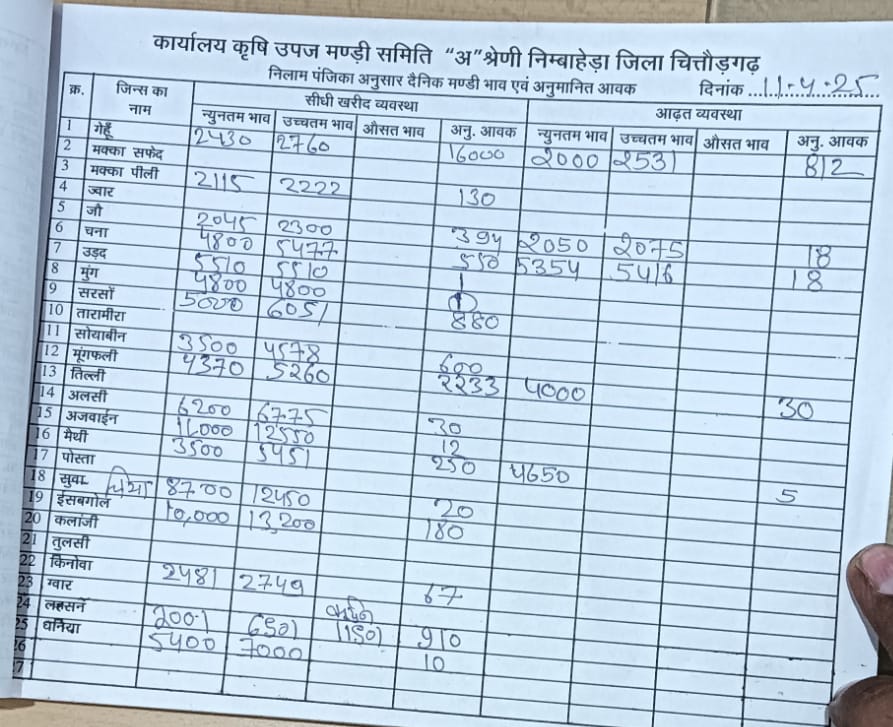 कार्यालय कृषि उपज मण्ड़ी समिति "अ"श्रेणी निम्बाहेड़ा जिला चित्तौड़गढ़
निलाम पंजिका अनुसार दैनिक मण्डी भाव एवं अनुमानित आवक दिनांक 11-4-25
क्र. जिन्स का नाम सीधी खरीद व्यवस्था आढ़त व्यवस्था
न्युनतम भाव उच्चतम भाव औसत भाव अनु. आवक न्युनतम भाव उच्चतम भाव औसत भाव अनु. आवक
1 गेहूँ 2430 2760 16000 2000 2531 812
2 मक्का सफेद
3 मक्का पीली 2115 2222 130
4 ज्वार
5 जौ 2045 2300 394 2050 2075 18
6 चना 4800 5477 550 5354 5416 18
7 उड़द 5510 5510 1
8 मुंग 4800 4800 1
9 सरसों 5000 6051 880
10 तारामीरा
11 सोयाबीन 3500 4578 600
12 मूंगफली 4370 5260 2233 4000 30
13 तिल्ली
14 अलसी 6200 6775 30
15 अजवाईन 11000 12550 12
16 मैथी 3500 5451 250 4650 5
17 पोस्ता
18 सुवा चिया 8700 12450 20
19 ईसबगोल 10,000 13,200 180
20 कलांजी
21 तुलसी
22 किनोवा 2481 2749 67
23 ग्वार
24 लहसन 2001 6501 11501 910
25 धनिया 5400 7000 10
26
27